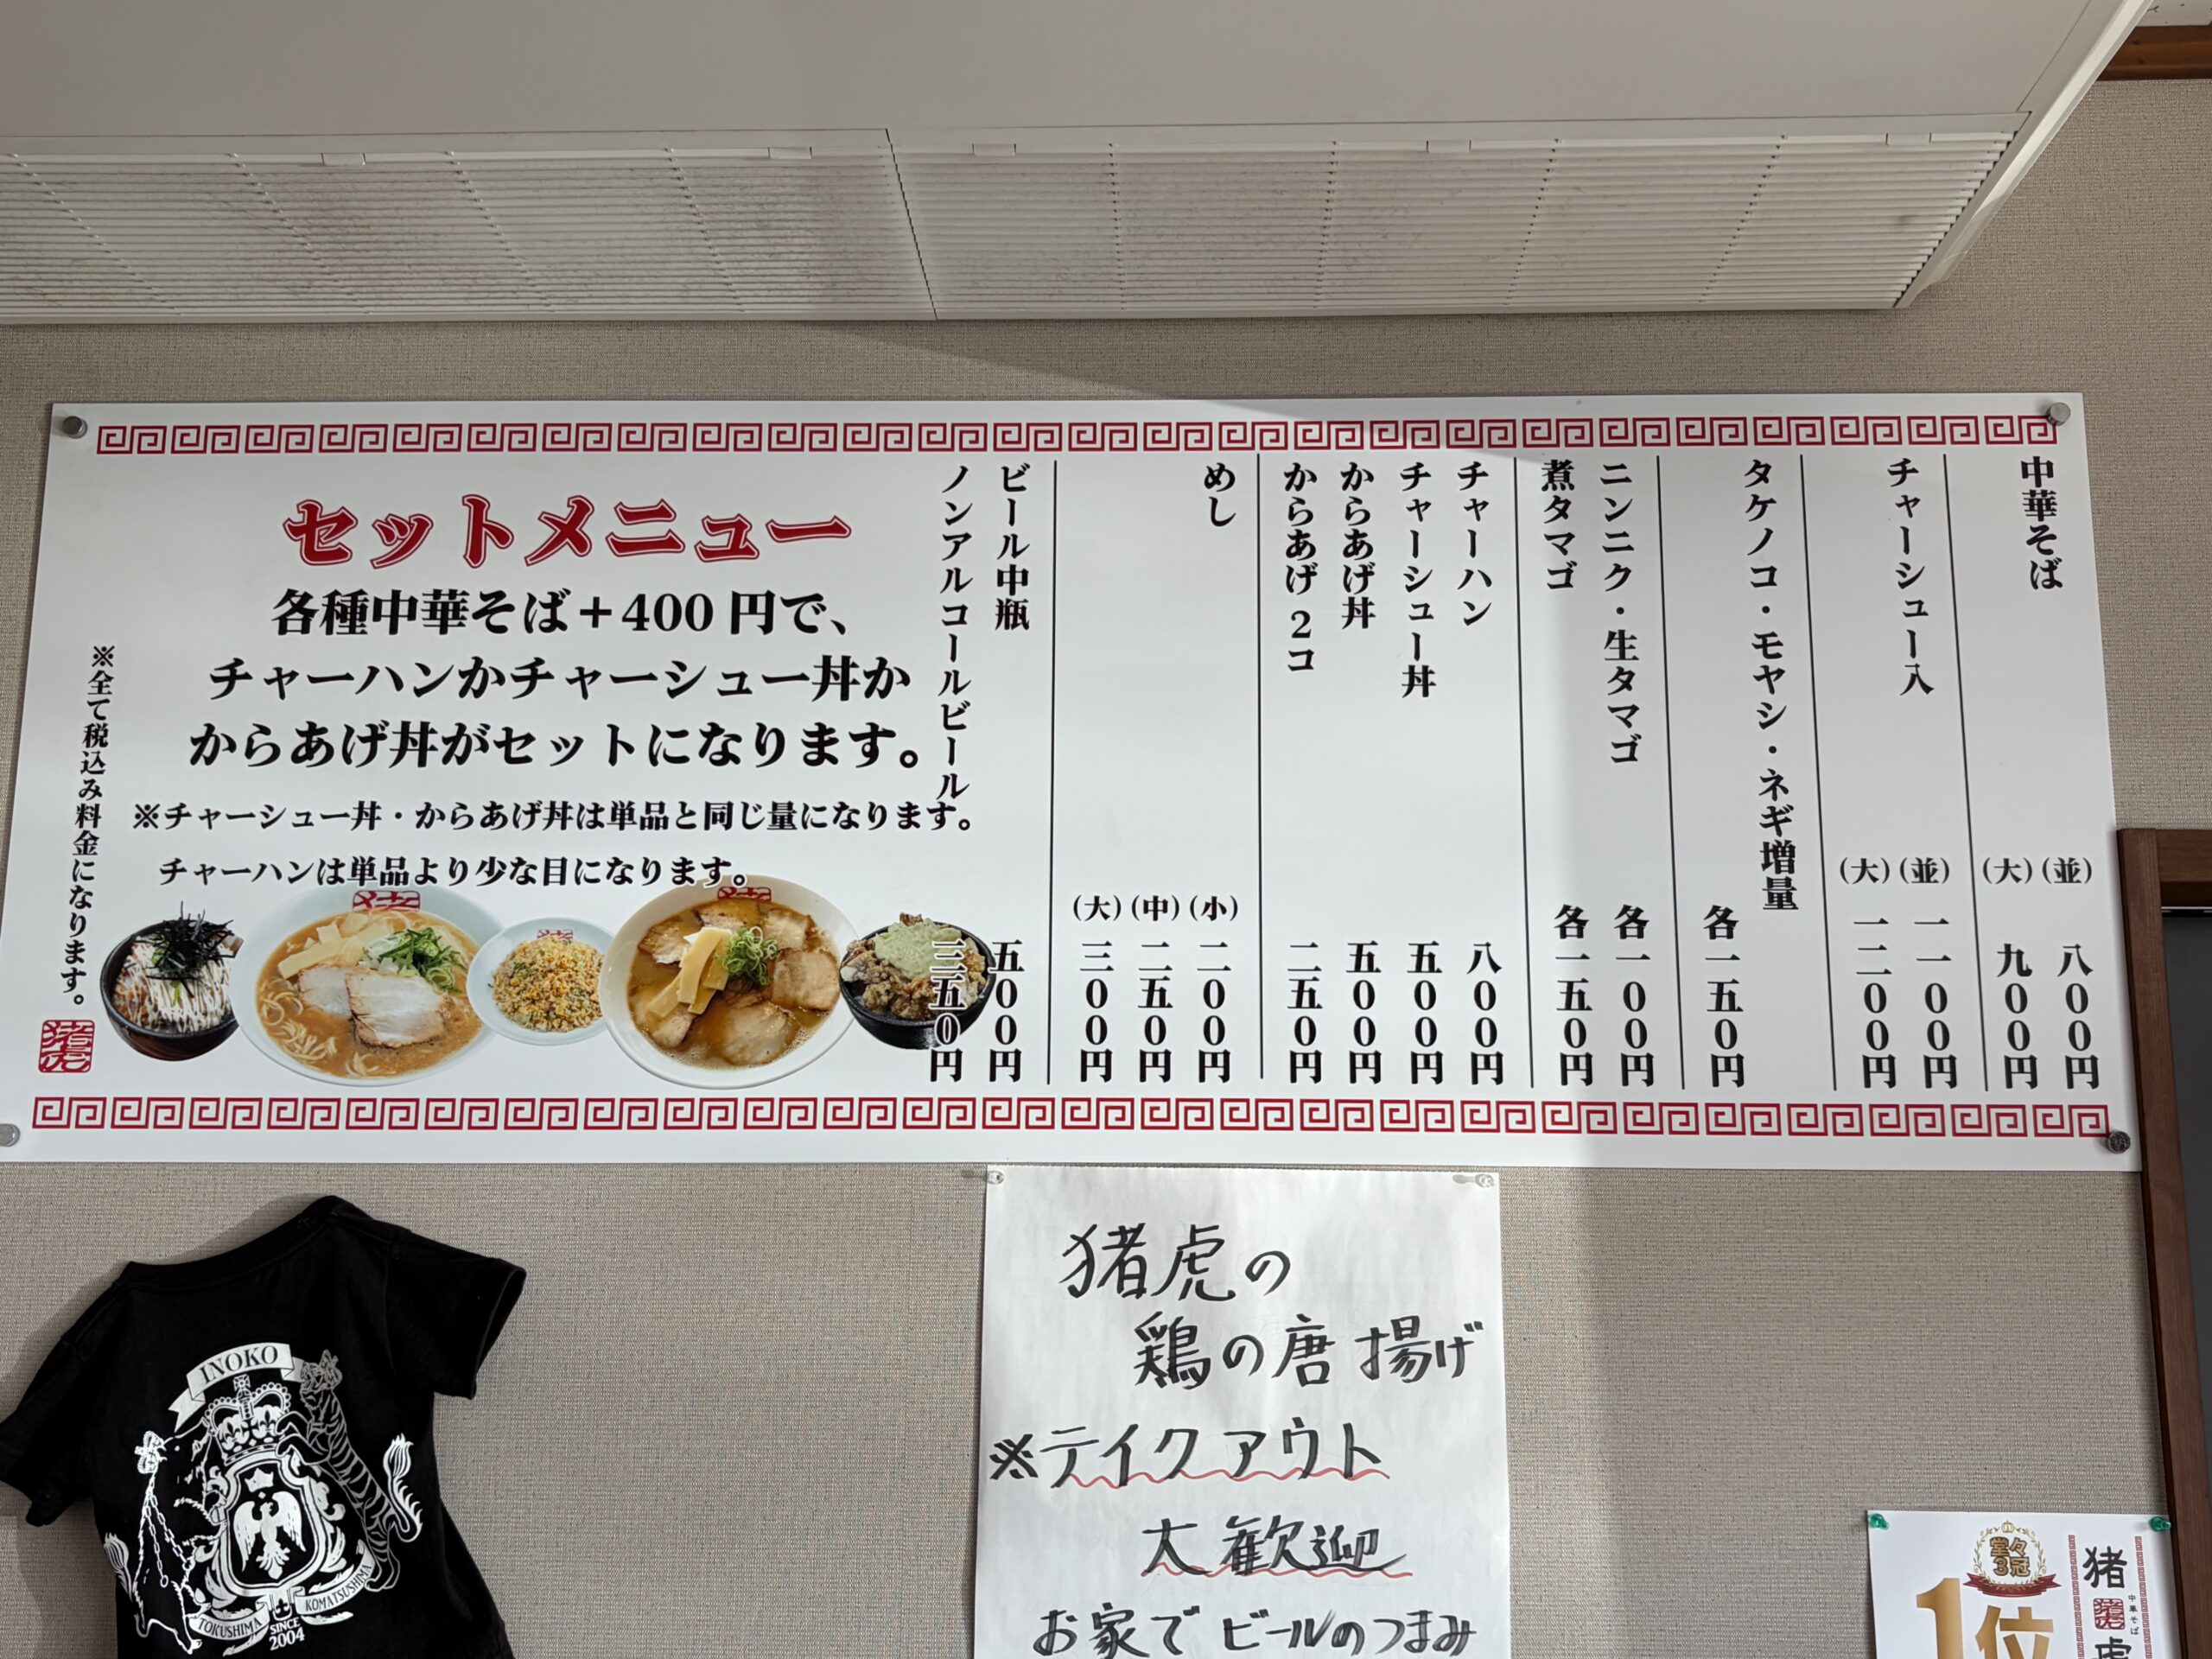 中華そば
(並) 八〇〇円
(大) 九〇〇円
チャーシュー入
(並) 一一〇〇円
(大) 一二〇〇円
タケノコ・モヤシ・ネギ増量
各一五〇円
ニンニク・生タマゴ 各一〇〇円
煮タマゴ 各一五〇円
チャーハン 八〇〇円
チャーシュー丼 五〇〇円
からあげ丼 五〇〇円
からあげ2コ 二五〇円
めし
(小) 二〇〇円
(中) 二五〇円
(大) 三〇〇円
ビール中瓶 五〇〇円
ノンアルコールビール 三五〇円
セットメニュー
各種中華そば+400円で、
チャーハンかチャーシュー丼か
からあげ丼がセットになります。
※チャーシュー丼・からあげ丼は単品と同じ量になります。
チャーハンは単品より少な目になります。
※全て税込み料金になります。
猪虎
猪虎の
鶏の唐揚げ
※テイクアウト
大歓迎
お家でビールのつまみ
INOKO
TOKUSHIMA
KOMATSUSHIMA
SINCE
2004
堂々
3冠
1位
猪
中華そば